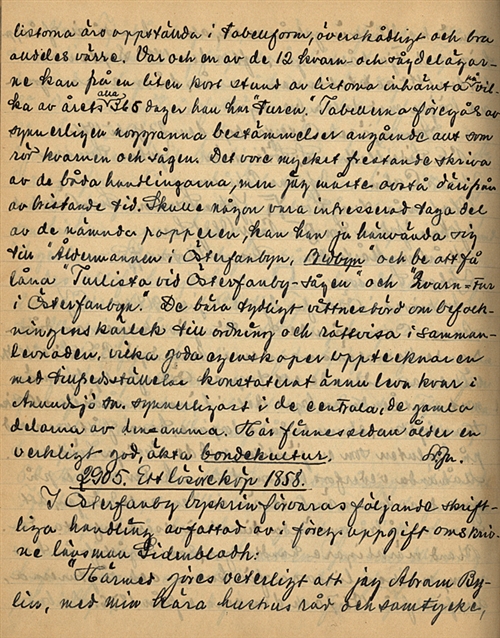 listorna äro uppställda i tabellform, överskådligt och bra
andeles värre. Var och en av de 12 kvarn och sågdelägar-
ne kan på en liten kort stund av listorna inhämta på vil-
ka av årets alla 365 dagar han har turen." Tabellerna föregås av
synnerligen noggranna bestämmelser angående allt som
rör kvarnen och sågen. Det vore mycket frestande skriva
av de båda handlingarna, men jag måste avstå därifrån
av bristande tid. Skulle någon vara intresserad taga del
av de nämnda papperen, kan han ju hänvända sig
till "Åldermannen i Österfanbyn, Bredbyn" och be att få
låna "Turlista vid Österfanby-sågen" och "Qvarn=Tur
i Österfanbyn". De bära tydligt vittnesbörd om befolk-
ningens kärlek till ordning och rättvisa i samman-
levnaden, vilka goda egenskaper upptecknaren
med tillfredsställelse konstaterat ännu leva kvar i
Anundsjö sn. synnerligast i de centrala, de gamla
delarna av densamma. Här finnes sedan ålder en
verkligt god, äkta bondekultur.
2905. Ett lösöreköp 1858.
I Österfanby byskrin förvaras följande skrift-
liga handling avfattad av i föreg. uppgift omskriv-
ne länsman Sidenbladh:
"Härmed göres veterligt att jag Abram By-
lin, med min kära hustrus råd och samtycke,